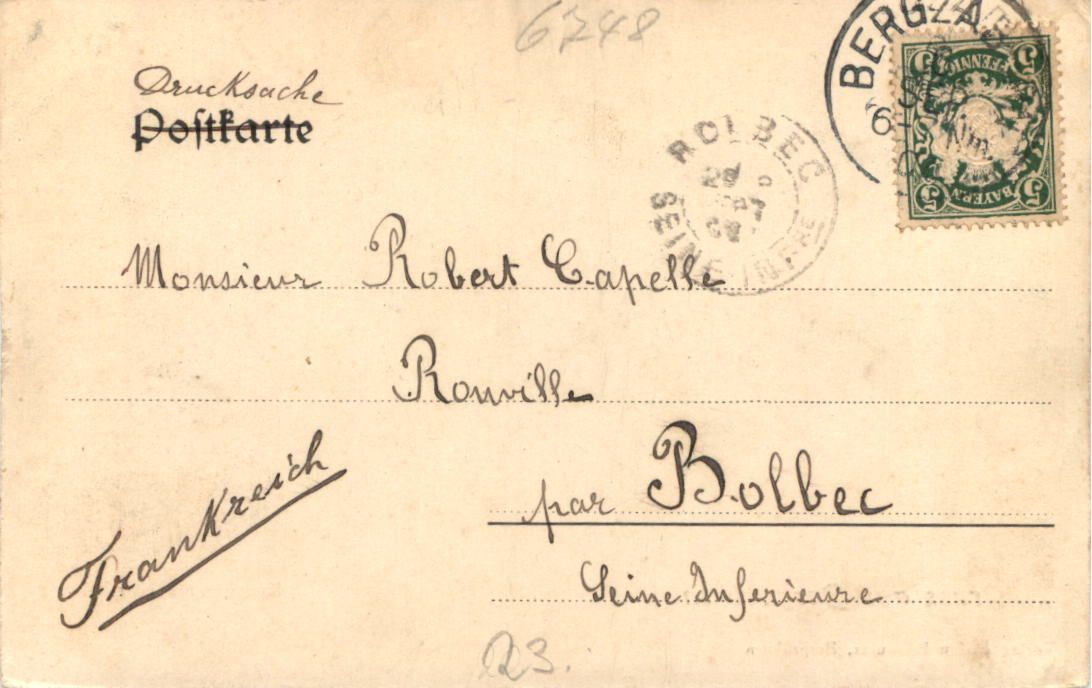 6748
Drucksache
Postkarte
BERGZA
6
5 5
PFENNIG
BAYERN
5 5
BOLBEC
SEINE INFRE
Monsieur Robert Capelle
Rouville
par Bolbec
Seine Inferieure
Frankreich
23.